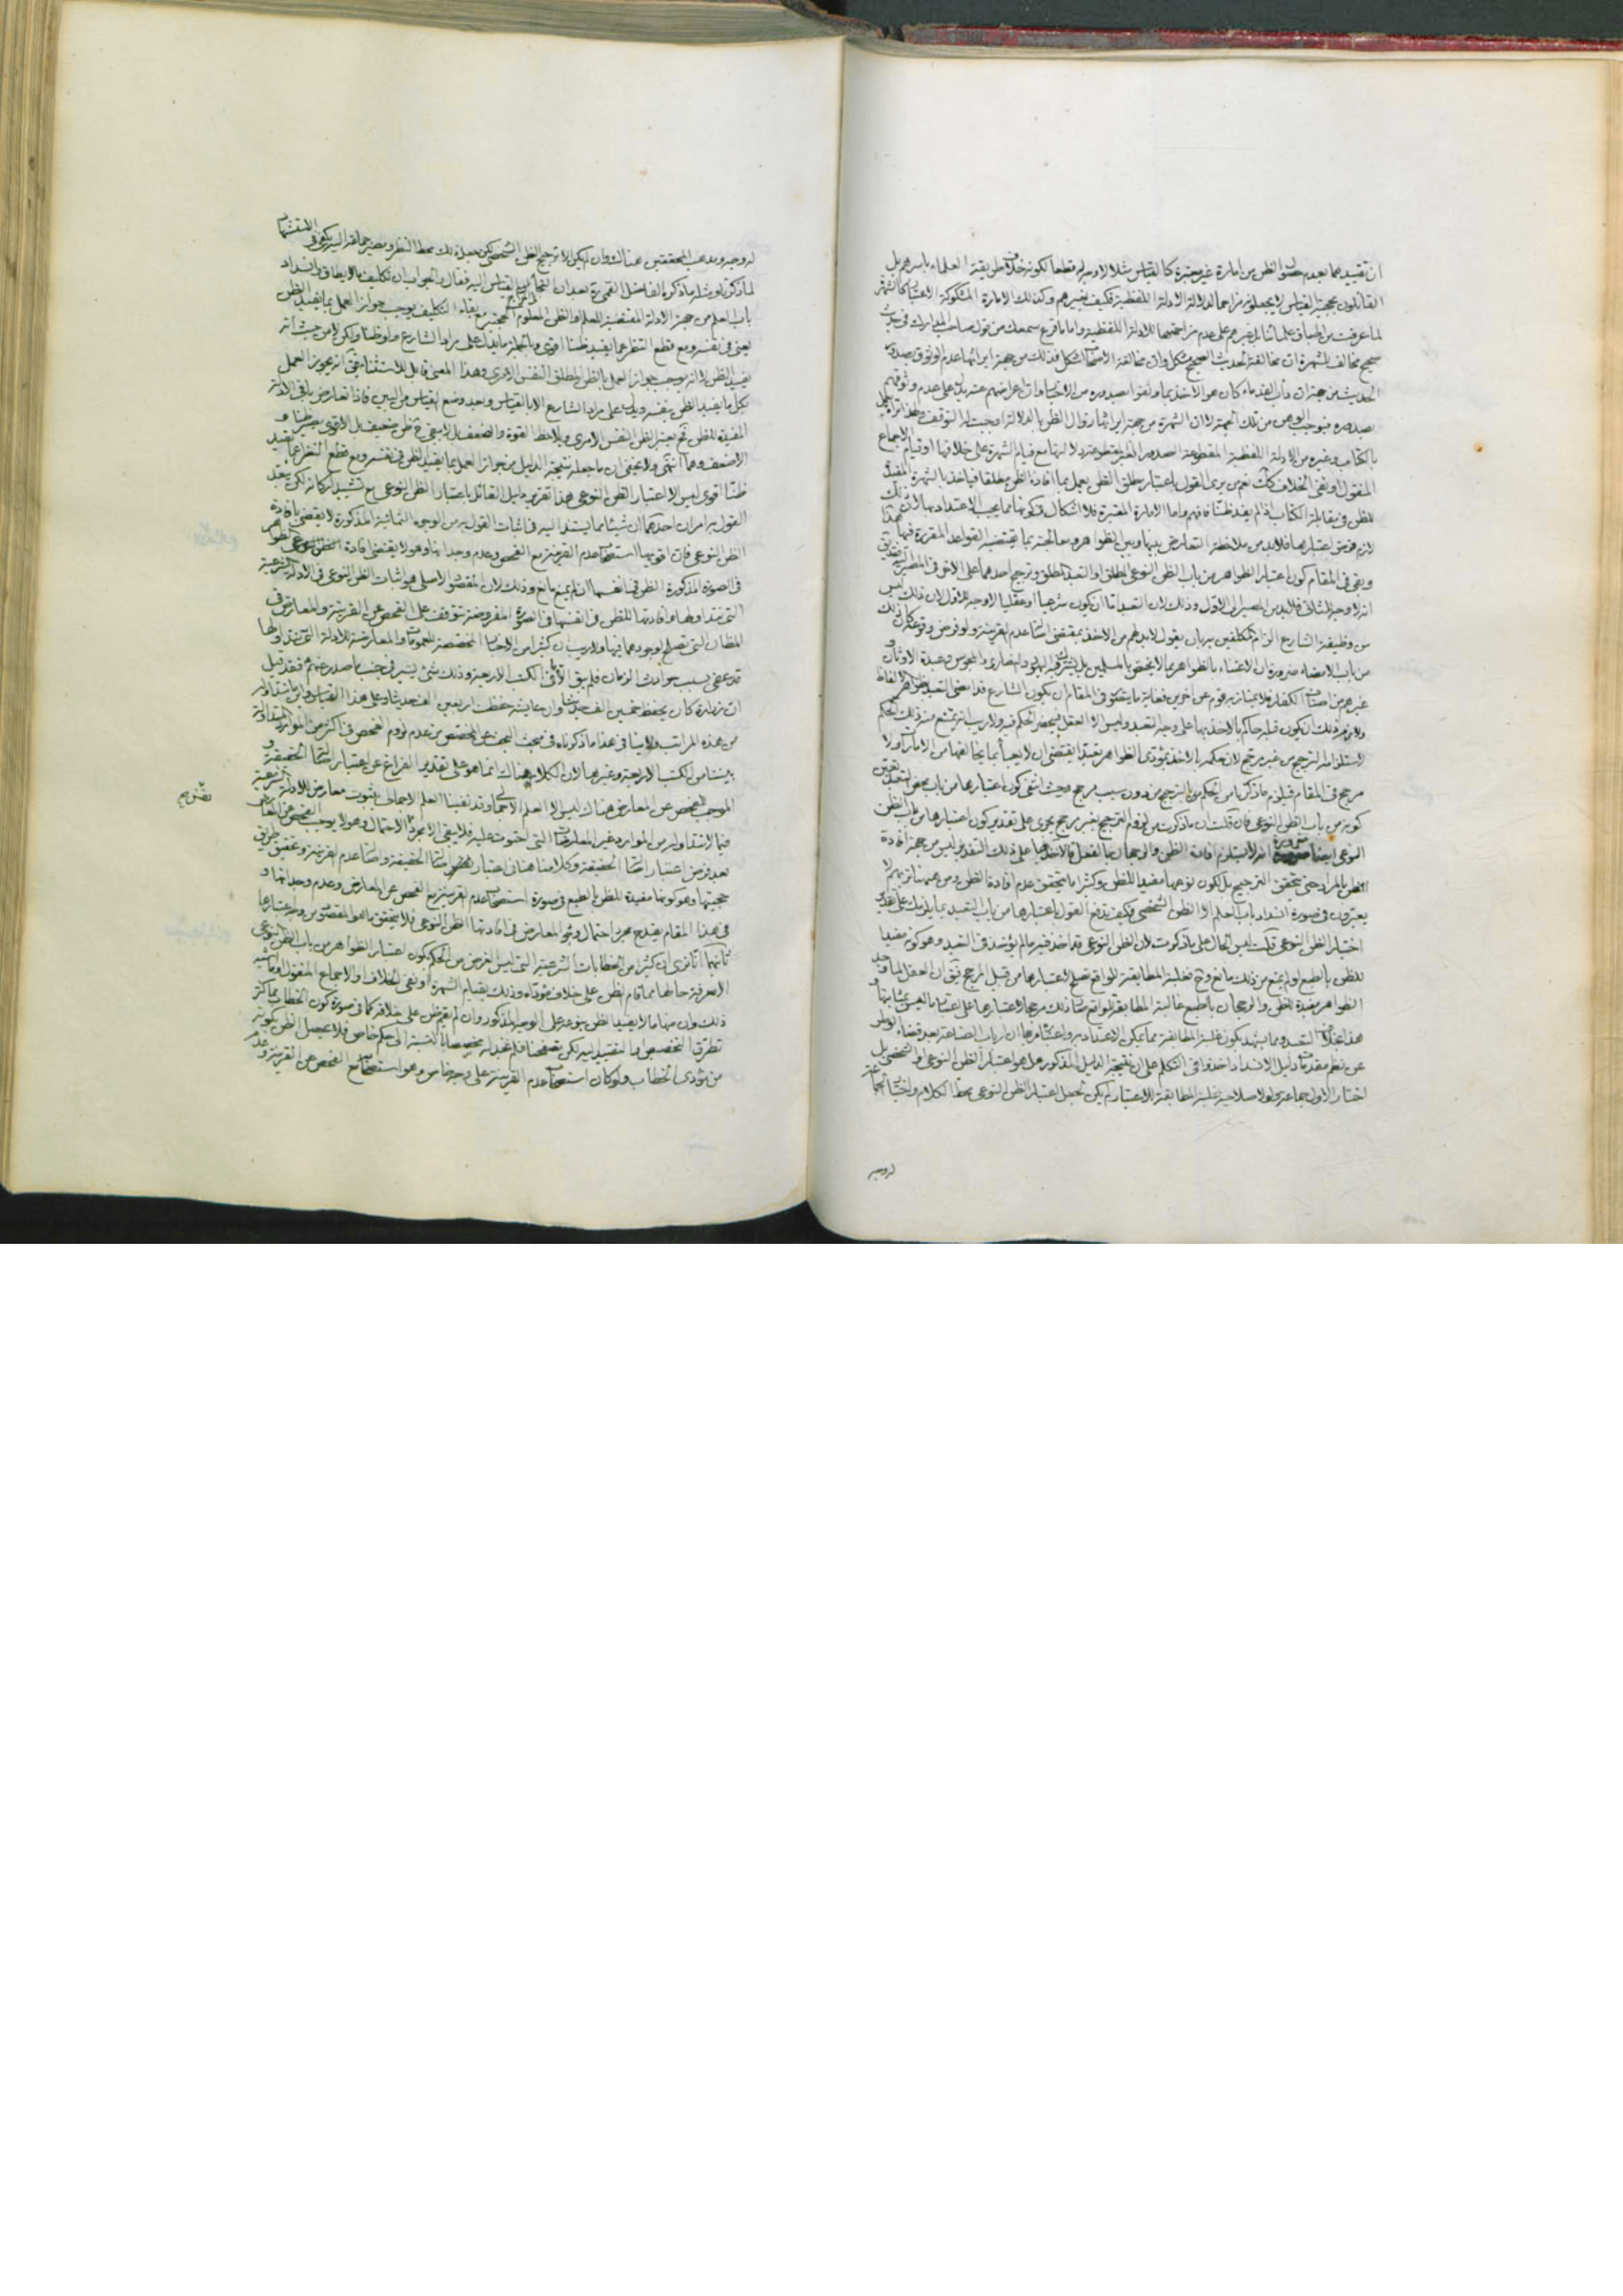 ان تقييدها بعدم حصول الظن من امارة غير معتبرة كالقياس مثلا لا وجه له قطعا لكونه خلاف طريقة العلماء باسرهم بل
القائلون بحجية القياس لا يجعلونه مزاحما لدلالة الادلة اللفظية فكيف بغيرهم وكذلك الامارة المشكوكة الاعتبار كالشهرة
لما عرفت من على عدم مزاحمتها للادلة اللفظية واما ما قرع سمعك من قول صاحب المدارك في حديث
صحيح مخالف للشهرة ان مخالفة الحديث الصحيح مشكل وان مخالفة الاصحاب اشكل فذلك من جهة ايراثها عدم الوثوق بصدور
الحديث من جهة ان دأب القدماء كان هو الاخذ بما وثقوا بصدوره من الاخبار وان اعراضهم عنه يدل على عدم وثوقهم
بصدوره فيوجب الوهن من تلك الجهة لا ان الشهرة من جهة ايراثها زوال الظن بالدلالة اوجبت له التوقف
بالكتاب وغيره من الادلة اللفظية المقطوعة الصدور الغير مقطوعة دلالتها مع قيام الشهرة على خلافها او قيام الاجماع
المنقول او نفي الخلاف كك نعم من يرى القول باعتبار مطلق الظن يعمل بما افاده الظن مطلقا فياخذ بالشهرة المفيدة
للظن في مقابلة الكتاب اذا لم يفد ظنا فافهم واما الامارة المعتبرة فلا اشكال في كونها مما يجب الاعتداد بها لان ذلك
لازم فرض اعتبارها فلابد من ملاحظة التعارض بينها وبين الظواهر ومعالجته بما يقتضيه القواعد المقررة فيها هذا
وبقي في المقام كون اعتبار الظواهر من باب الظن النوعي المطلق او التعبد المطلق وترجيح احدهما على الاخر
انه لا وجه للثاني فلابد من المصير الى الاول وذلك لان التعبد اما ان يكون شرعيا او عقليا لا وجه للاول لان ذلك ليس
من وظيفة الشارع الزام المكلفين به بان يقول لابد لهم من الاخذ بمقتضى اصالة عدم القرينة ولو فرض وقوعه كان ذلك
من باب الامضاء ضرورة ان الاعتناء بالظواهر مما لا يختص بالمسلمين بل يشترك فيه اليهود والنصارى والمجوس وعبدة الاوثان و
غيرهم من اصناف الكفار فلا يمتاز به قوم عن اخرين فغاية ما يتصور في المقام ان يكون الشارع قد امضى التعبد بظواهر الالفاظ
ولازم ذلك ان يكون قبله حاكم بالاخذ بها على وجه التعبد وليس الا العقل فينحصر الحكم فيه ولا ريب انه يمتنع منه ذلك الحكم
لاستلزامه الترجيح من غير مرجح لان حكمه بالاخذ بمؤدى الظواهر تعبدا يقتضي ان لا يعبأ بما يخالفها من الامارات ولا
مرجح في المقام فيلزم ما ذكرنا من الحكم بالترجيح من دون سبب مرجح وحيث انتفى كون اعتبارها من باب محض التعبد تعين
كونه من باب الظن النوعي فان قلت ان ما ذكرت من لزوم الترجيح بغير مرجح يجري على تقدير كون اعتبارها من باب الظن
النوعي ايضا ضرورة انه لا يستلزم افادة الظن والرجحان بالفعل فالاخذ بها على ذلك التقدير ليس من جهة افادة
الظن بالمراد حتى يتحقق الترجيح بل لكون نوعها مفيدا للظن وكثيرا ما يتحقق عدم افادة الظن ومن هنا تريهم لا
يعتبرون في صورة انسداد باب العلم الا الظن الشخصي فكيف تدفع القول باعتبارها من باب التعبد بما يلزمك على تقدير
اختيار الظن النوعي قلت ليس الحال على ما ذكرت لان الظن النوعي قد اخذ فيه ما لم يؤخذ في التعبد وهو كونه مفيدا
للظن بالطبع لو لم يمنع من ذلك مانع وح فغلبة المطابقة للواقع تصلح لاعتبارها من قبل المرجح بمعنى ان العقل لما وجد
الظواهر مفيدة للظن والرجحان بالطبع غالبة المطابقة للواقع صار ذلك مرجحا لاعتبارها على اعتبار ما ليس بمثابتها و
هذا بخلاف التعبد ومما يشهد بكون غلبة المطابقة مما يمكن الاعتداد به واعتباره مرجحا ان ارباب الصناعة بعد قضاء الوطر
عن نظم مقدمات دليل الانسداد اخذوا في التكلم على ان نتيجة الدليل المذكور هل هو اعتبار الظن النوعي او الشخصي بل
اختار الاول جماعة ولولا صلاحية غلبة المطابقة للاعتبار لم يكن لجعل اعتبار الظن النوعي محطا للكلام واختيار الجماعة
له وجه
له وجه ومذهب المحققين هناك وان لم يكن الا ترجيح الظن الشخصي لكن جعل ذلك محط النظر ومصير جماعة اليه يكفي في الاستشهاد
لما ذكرنا ومثله ما ذكره الفاضل القمي ره بعد ان التجأ القياس اليه فقال والجواب ان تكليف ما لا يطاق وانسداد
باب العلم من جهة الادلة المقتضية للعلم او الظن المعلوم الحجية مع بقاء التكليف يوجب جواز العمل بما يفيد الظن
يعني في نفسه ومع قطع النظر عما يفيد ظنا اقوى وبالجملة ما يدل على مراد الشارع ولو ظنا ولكن لا من حيث انه
يفيد الظن لا انه يوجب جواز العمل بالظن المطلق النفس الامري وهذا المعنى قابل للاستثناء فيق انه يجوز العمل
بكل ما يفيد الظن بنفسه ويدل على مراد الشارع الا بالقياس وبعد وضع القياس من البين فاذا تعارض باقي الادلة
المفيدة للظن فح يعتبر الظن النفس الامري ويلاحظ القوة والضعف بل لا يبقى ح ظن ضعيف بل الاقوى يصير ظنا و
الاضعف وهما انتهى ولا يخفى ان ما جعله نتيجة الدليل من جواز العمل بما يفيد الظن في نفسه ومع قطع النظر عما يفيد
ظنا اقوى ليس الا اعتبار الظن النوعي هذا تقرير دليل القائل باعتبار الظن النوعي مع تشييد اركانه لكن يبعد
القول به امران احدهما ان شيئا مما يستند اليه في اثبات القول به من الوجوه الثمانية المذكورة لا يقضي بافادة
الظن النوعي فان اقويها استصحاب عدم القرينة مع الفحص وعدم وجدانها وهو لا يقتضي افادة الظن
في الصورة المذكورة الظن في انفسها ان لم يمنع مانع وذلك لان المقصود الاصلي هو اثبات الظن النوعي في الادلة الشرعية
التي نتداولها وافادتها للظن في انفسها في الصورة المفروضة تتوقف على الفحص عن القرينة والمعارض في
المظان التي تصلح لوجودهما فيها ولا ريب ان كثيرا من الاخبار المخصصة للعمومات والمعارضة للادلة التي نتداولها
قد عفى بسبب حوادث الزمان فلم يبق الا ما في الكتب الاربعة وذلك شيء يسير في جنب ما صدر عنهم فقد قيل
ان زرارة كان يحفظ خمسين الف حديث وان عايشة حفظت اربعين الف حديث وعلى هذا القياس
من هذه المراتب ولا ينافي هذا ما ذكرناه في مبحث البحث عن المخصص من عدم لزوم الفحص في اكثر من الموارد المتداولة
بيننا من الكتب الاربعة وغيرها لان الكلام هناك انما هو على تقدير الفراغ عن اعتبار اصالة الحقيقة و
الموجب للفحص عن المعارض هناك ليس الا العلم الاجمالي وقد نفينا العلم الاجمالي بثبوت معارض للادلة الشرعية
فيما لا نتداوله من الموارد غير المعارضات التي احتوت عليه فلا يبقى الا مجرد الاحتمال وهو لا يوجب الفحص عن المعارض
بعد فرض اعتبار اصالة الحقيقة وكلامنا هنا في اعتبار اصالة الحقيقة واصالة عدم القرينة وتحقيق طريق
حجيتها وهو كونها مفيدة للظن بالطبع في صورة استصحاب عدم القرينة مع الفحص عن المعارض وعدم وجدانها و
في هذا المقام يقدح مجرد احتمال وجود المعارض في افادتها الظن النوعي فلا يتحقق ما هو المقصود من وجه اعتبارها
ثانيهما انا نرى ان كثيرا من الخطابات الشرعية التي ليس الغرض من الحكم بكون اعتبار الظواهر من باب الظن النوعي
الا معرفة حالها مما قام الظن على خلاف مؤداه وذلك بقيام الشهرة او نفي الخلاف او الاجماع المنقول وما اشبه
ذلك وان منها ما لا يفيد الظن بنوعه على الوجه المذكور وان لم يقم ظن على خلافه كما في صورة كون الخطاب مما كثر
تطرق التخصيص او التقييد اليه لكن تفحصنا فلم نجد له مخصصا بالنسبة الى حكم خاص فلا يحصل الظن بكونه
من مؤدى الخطاب ولو كان استصحاب عدم القرينة على وجه خاص وهو استصحابه مع الفحص عن القرينة وعدم